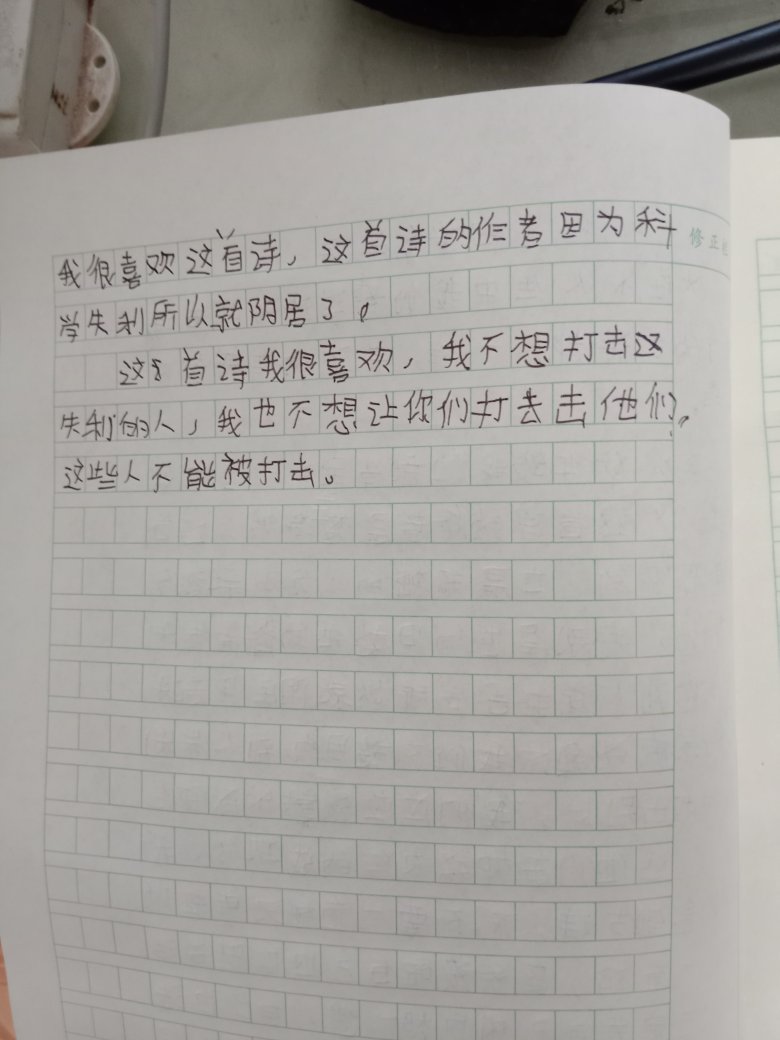 我很喜欢这首诗，这首诗的作者因为科
学失利所以就阴居了。
这首诗我很喜欢，我不想打击这
失利的人，我也不想让你们打去击他们。
这些人不能被打击。
修正